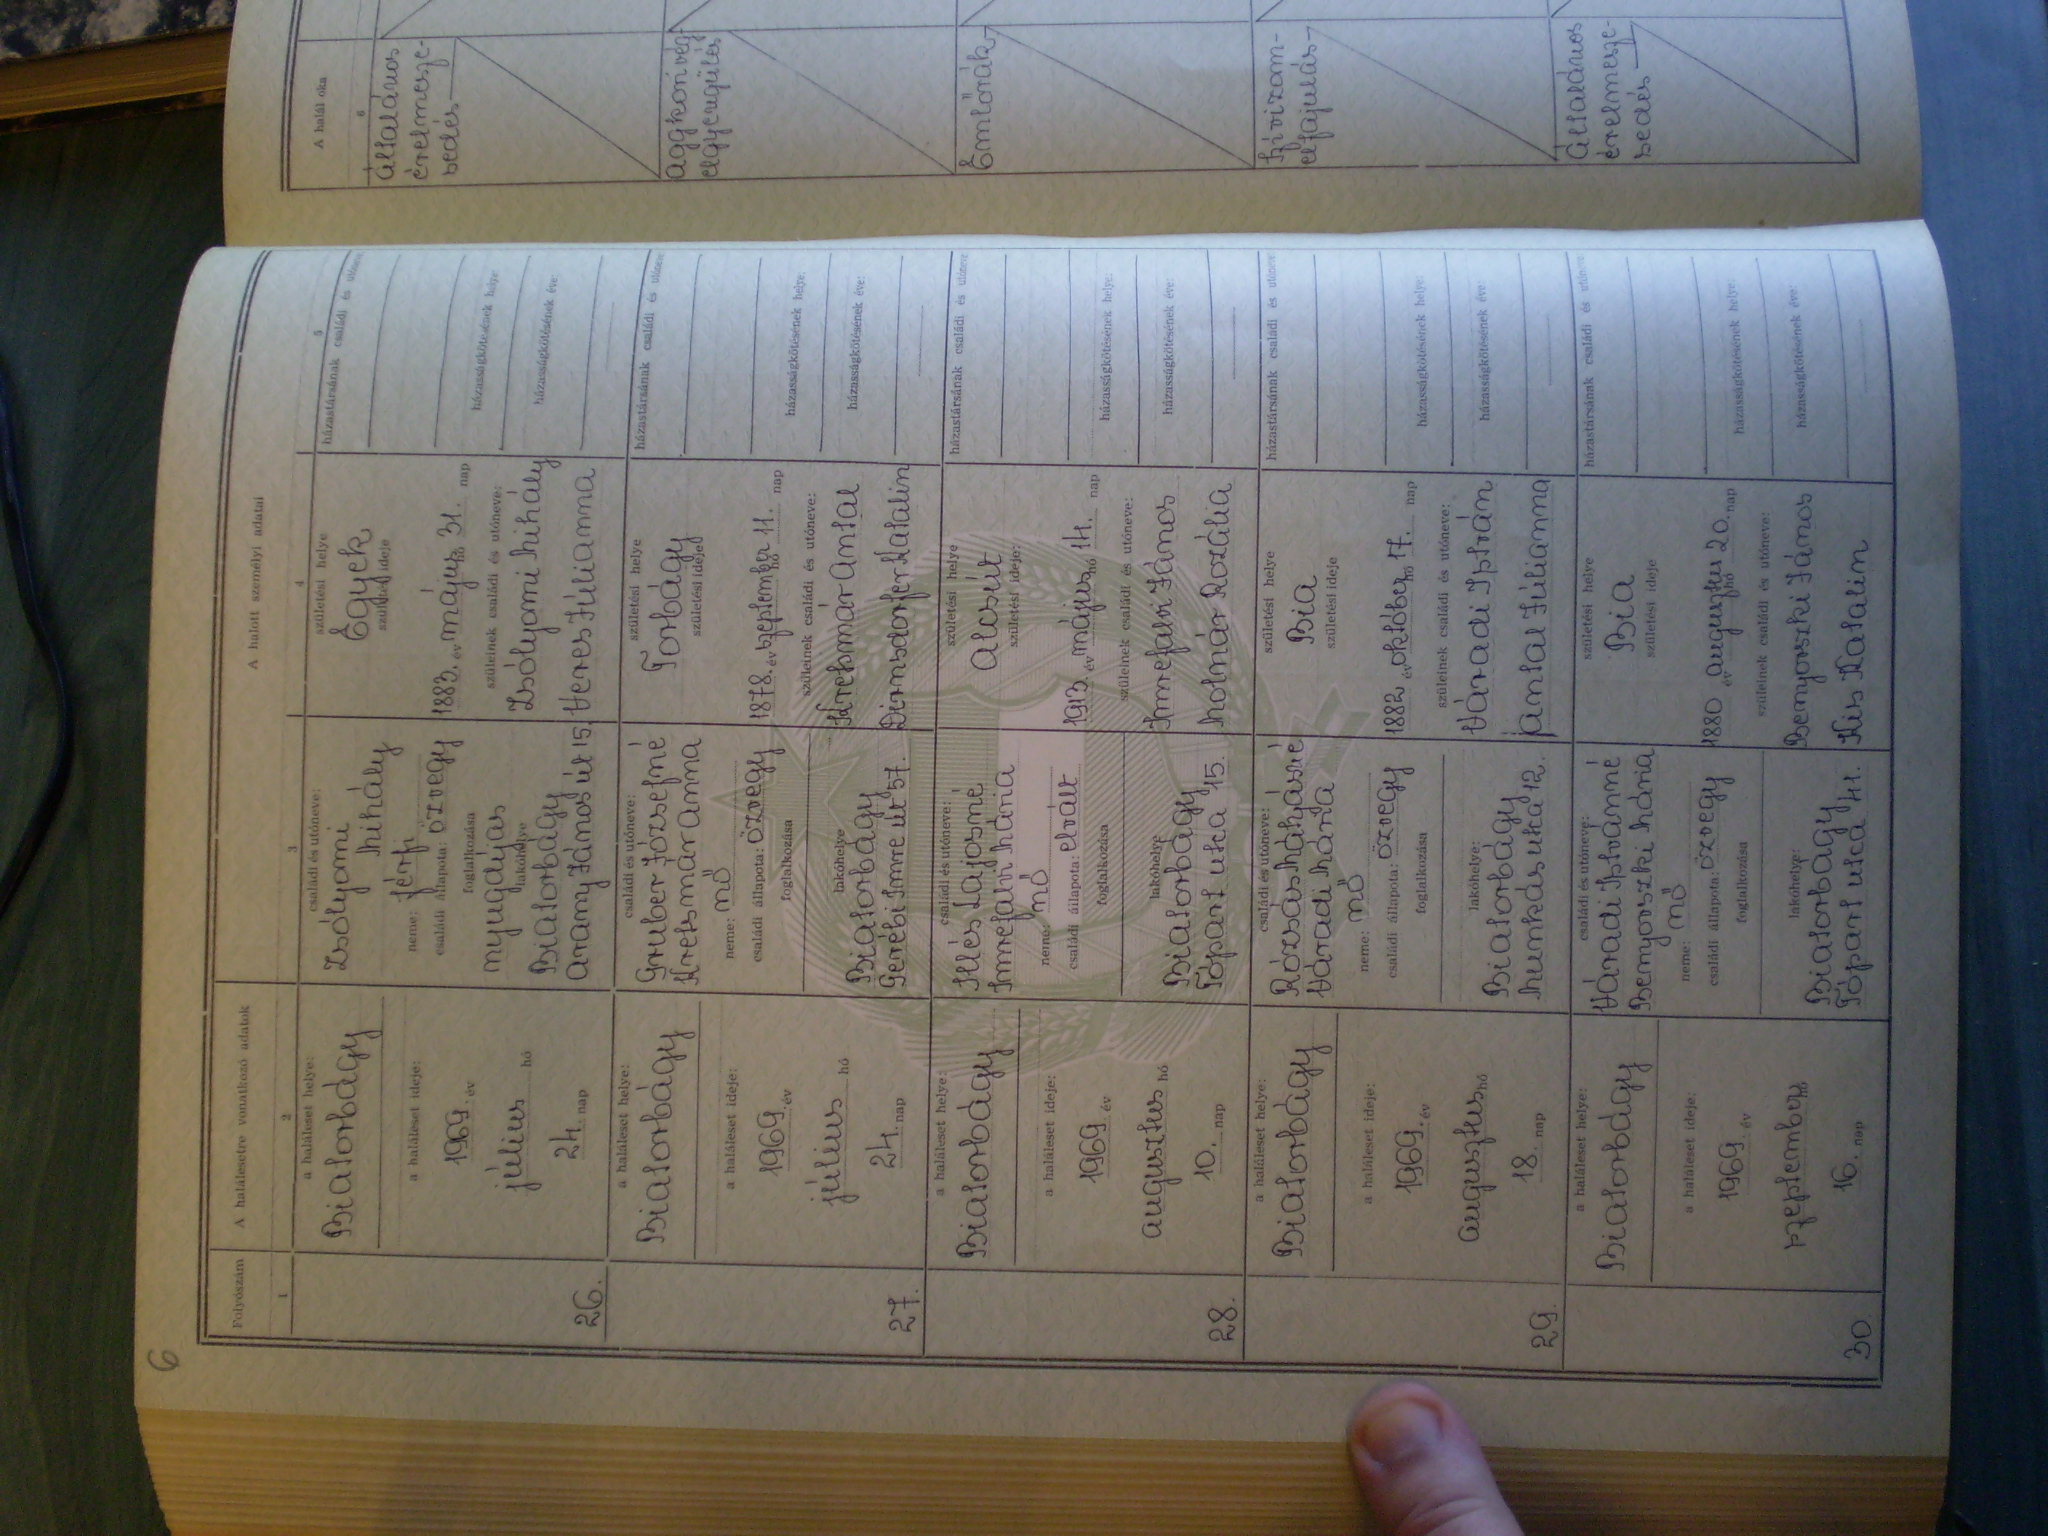 6
Folyószám
A halálesetre vonatkozó adatok
A halott személyi adatai
1
2
3
4
5
26.
a haláleset helye:
Biatorbágy
a haláleset ideje:
1969. év
július hó
24. nap
családi és utóneve:
Zsólyomi
Mihály
neme: férfi
családi állapota: özvegy
foglalkozása
nyugdíjas
lakóhelye
Biatorbágy
Arany János út 15.
születési helye
Egyek
születési ideje
1883. év május hó 31. nap
szüleinek családi és utóneve:
Zsólyomi Mihály
Veres Júlianna
házastársának családi és utóneve
házasságkötésének helye
házasságkötésének éve:
27.
a haláleset helye:
Biatorbágy
a haláleset ideje:
1969. év
július hó
24. nap
családi és utóneve:
Gruber Józsefné
Kretsmár Anna
neme: nő
családi állapota: özvegy
foglalkozása
lakóhelye
Biatorbágy
Gerébi Imre út 57.
születési helye
Torbágy
születési ideje
1878. év szeptember hó 11. nap
szüleinek családi és utóneve:
Kretsmár Antal
Dirnsdorfer Katalin
házastársának családi és utóneve
házasságkötésének helye:
házasságkötésének éve:
28.
a haláleset helye:
Biatorbágy
a haláleset ideje:
1969 év
augusztus hó
10. nap
családi és utóneve:
Illés Lajosné
Imrefalvi Mária
neme: nő
családi állapota: elvált
foglalkozása
lakóhelye
Biatorbágy
Tópart utca 15.
születési helye
Alcsút
születési ideje:
1913. év május hó 14. nap
szüleinek családi és utóneve:
Imrefalvi János
Molnár Rozália
házastársának családi és utóneve
házasságkötésének helye:
házasságkötésének éve:
29.
a haláleset helye:
Biatorbágy
a haláleset ideje:
1969. év
augusztus hó
18. nap
családi és utóneve:
Rózsás Mátyásné
Váradi Márta
neme: nő
családi állapota: özvegy
foglalkozása
lakóhelye:
Biatorbágy
Munkás utca 12.
születési helye
Bia
születési ideje
1882 év október hó 17. nap
szüleinek családi és utóneve:
Váradi István
Jántal Júlianna
házastársának családi és utóneve
házasságkötésének helye:
házasságkötésének éve:
30.
a haláleset helye:
Biatorbágy
a haláleset ideje:
1969 év
szeptember hó
16. nap
családi és utóneve:
Váradi Istvánné
Benyovszki Mária
neme: nő
családi állapota: özvegy
foglalkozása
lakóhelye:
Biatorbágy
Tópart utca 41.
születési helye
Bia
születési ideje
1880 év augusztus hó 20. nap
szüleinek családi és utóneve:
Benyovszki János
Kis Katalin
házastársának családi és utóneve
házasságkötésének helye:
házasságkötésének éve:
A halál oka
6
Általános
érelmesze-
sedés
Aggkori vég-
elgyengülés
Emlőrák
Szívizom-
elfajulás
Általános
érelmesze-
sedés